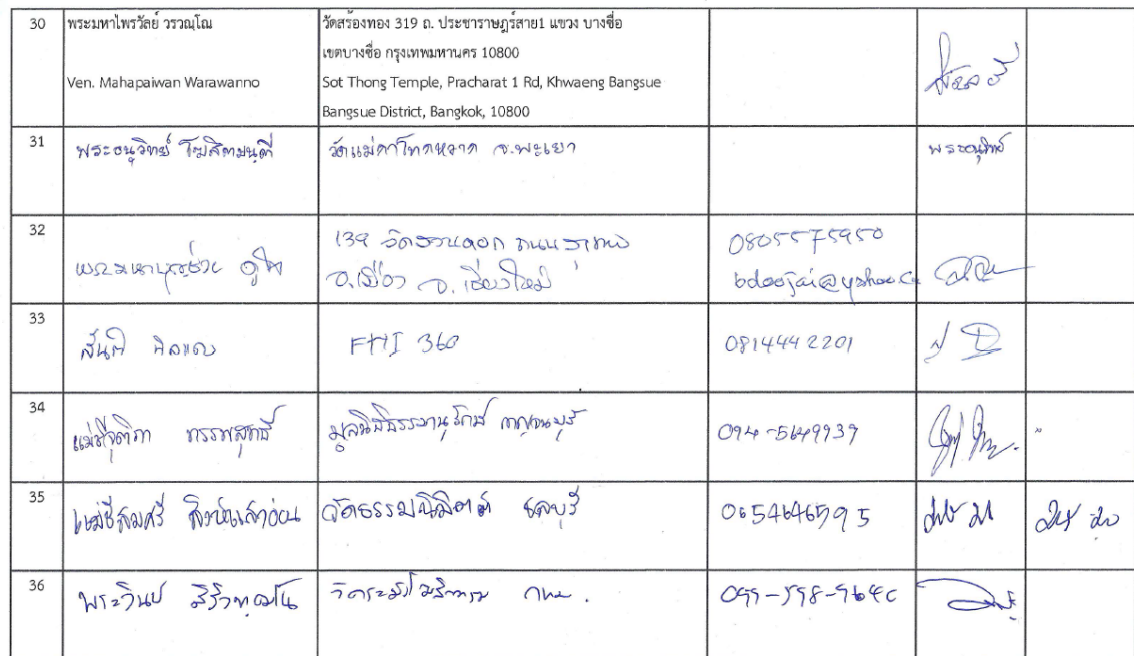 30
พระมหาไพรวัลย์ วรวณฺโณ
Ven. Mahapaiwan Warawanno
วัดสร้องทอง 319 ถ. ประชาราษฎร์สาย1 แขวง บางซื่อ
เขตบางซื่อ กรุงเทพมหานคร 10800
Sot Thong Temple, Pracharat 1 Rd, Khwaeng Bangsue
Bangsue District, Bangkok, 10800
31
พระอนุวิทย์
วัดแม่กาโทกหวาก จ.พะเยา
พระอนุวิทย์
32
พระมหาบุญช่วย
139 วัดสวนดอก ถนนสุเทพ
อ.เมือง จ.เชียงใหม่
0805575950
33
สันติ
FHI 360
0814442201
34
แม่ชี
มูลนิธิธรรมานุรักษ์ กาญจนบุรี
094-5649939
35
แม่ชีสมศรี
วัดธรรมนิมิตต์ ชลบุรี
0654646595
36
พระวินย์ สิริวฑฺฒโน
วัดระฆังโฆสิตาราม กทม.